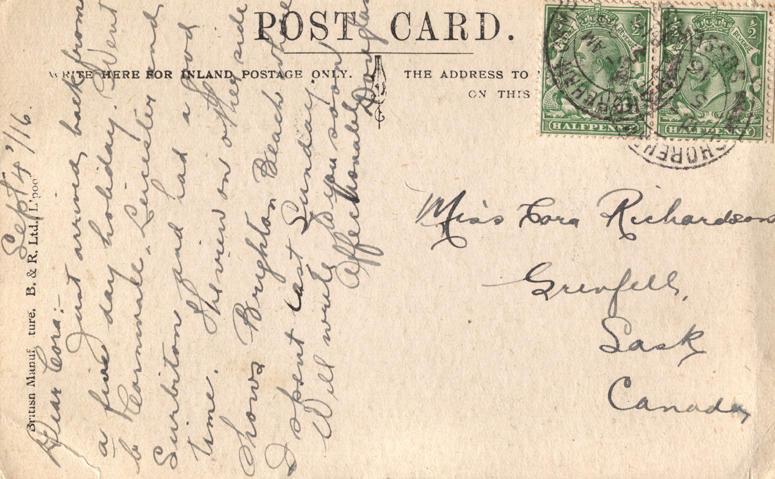 POST CARD.
WRITE HERE FOR INLAND POSTAGE ONLY.
THE ADDRESS TO
ON THIS
HALFPENNY
HALFPENNY
SHOREHAM
SUSSEX
British Manufacture, B. & R. Ltd., L'pool
Sept 4/16.
Dear Cora:-
Just arrived back from
a five day holiday. Went
to Leicester and
Surbiton and had a good
time. The view on other side
shows Brighton Beach where
I spent last Sunday.
Will write to you soon
Affectionately
Douglas
Miss Cora Richardson
Grenfell,
Sask
Canada